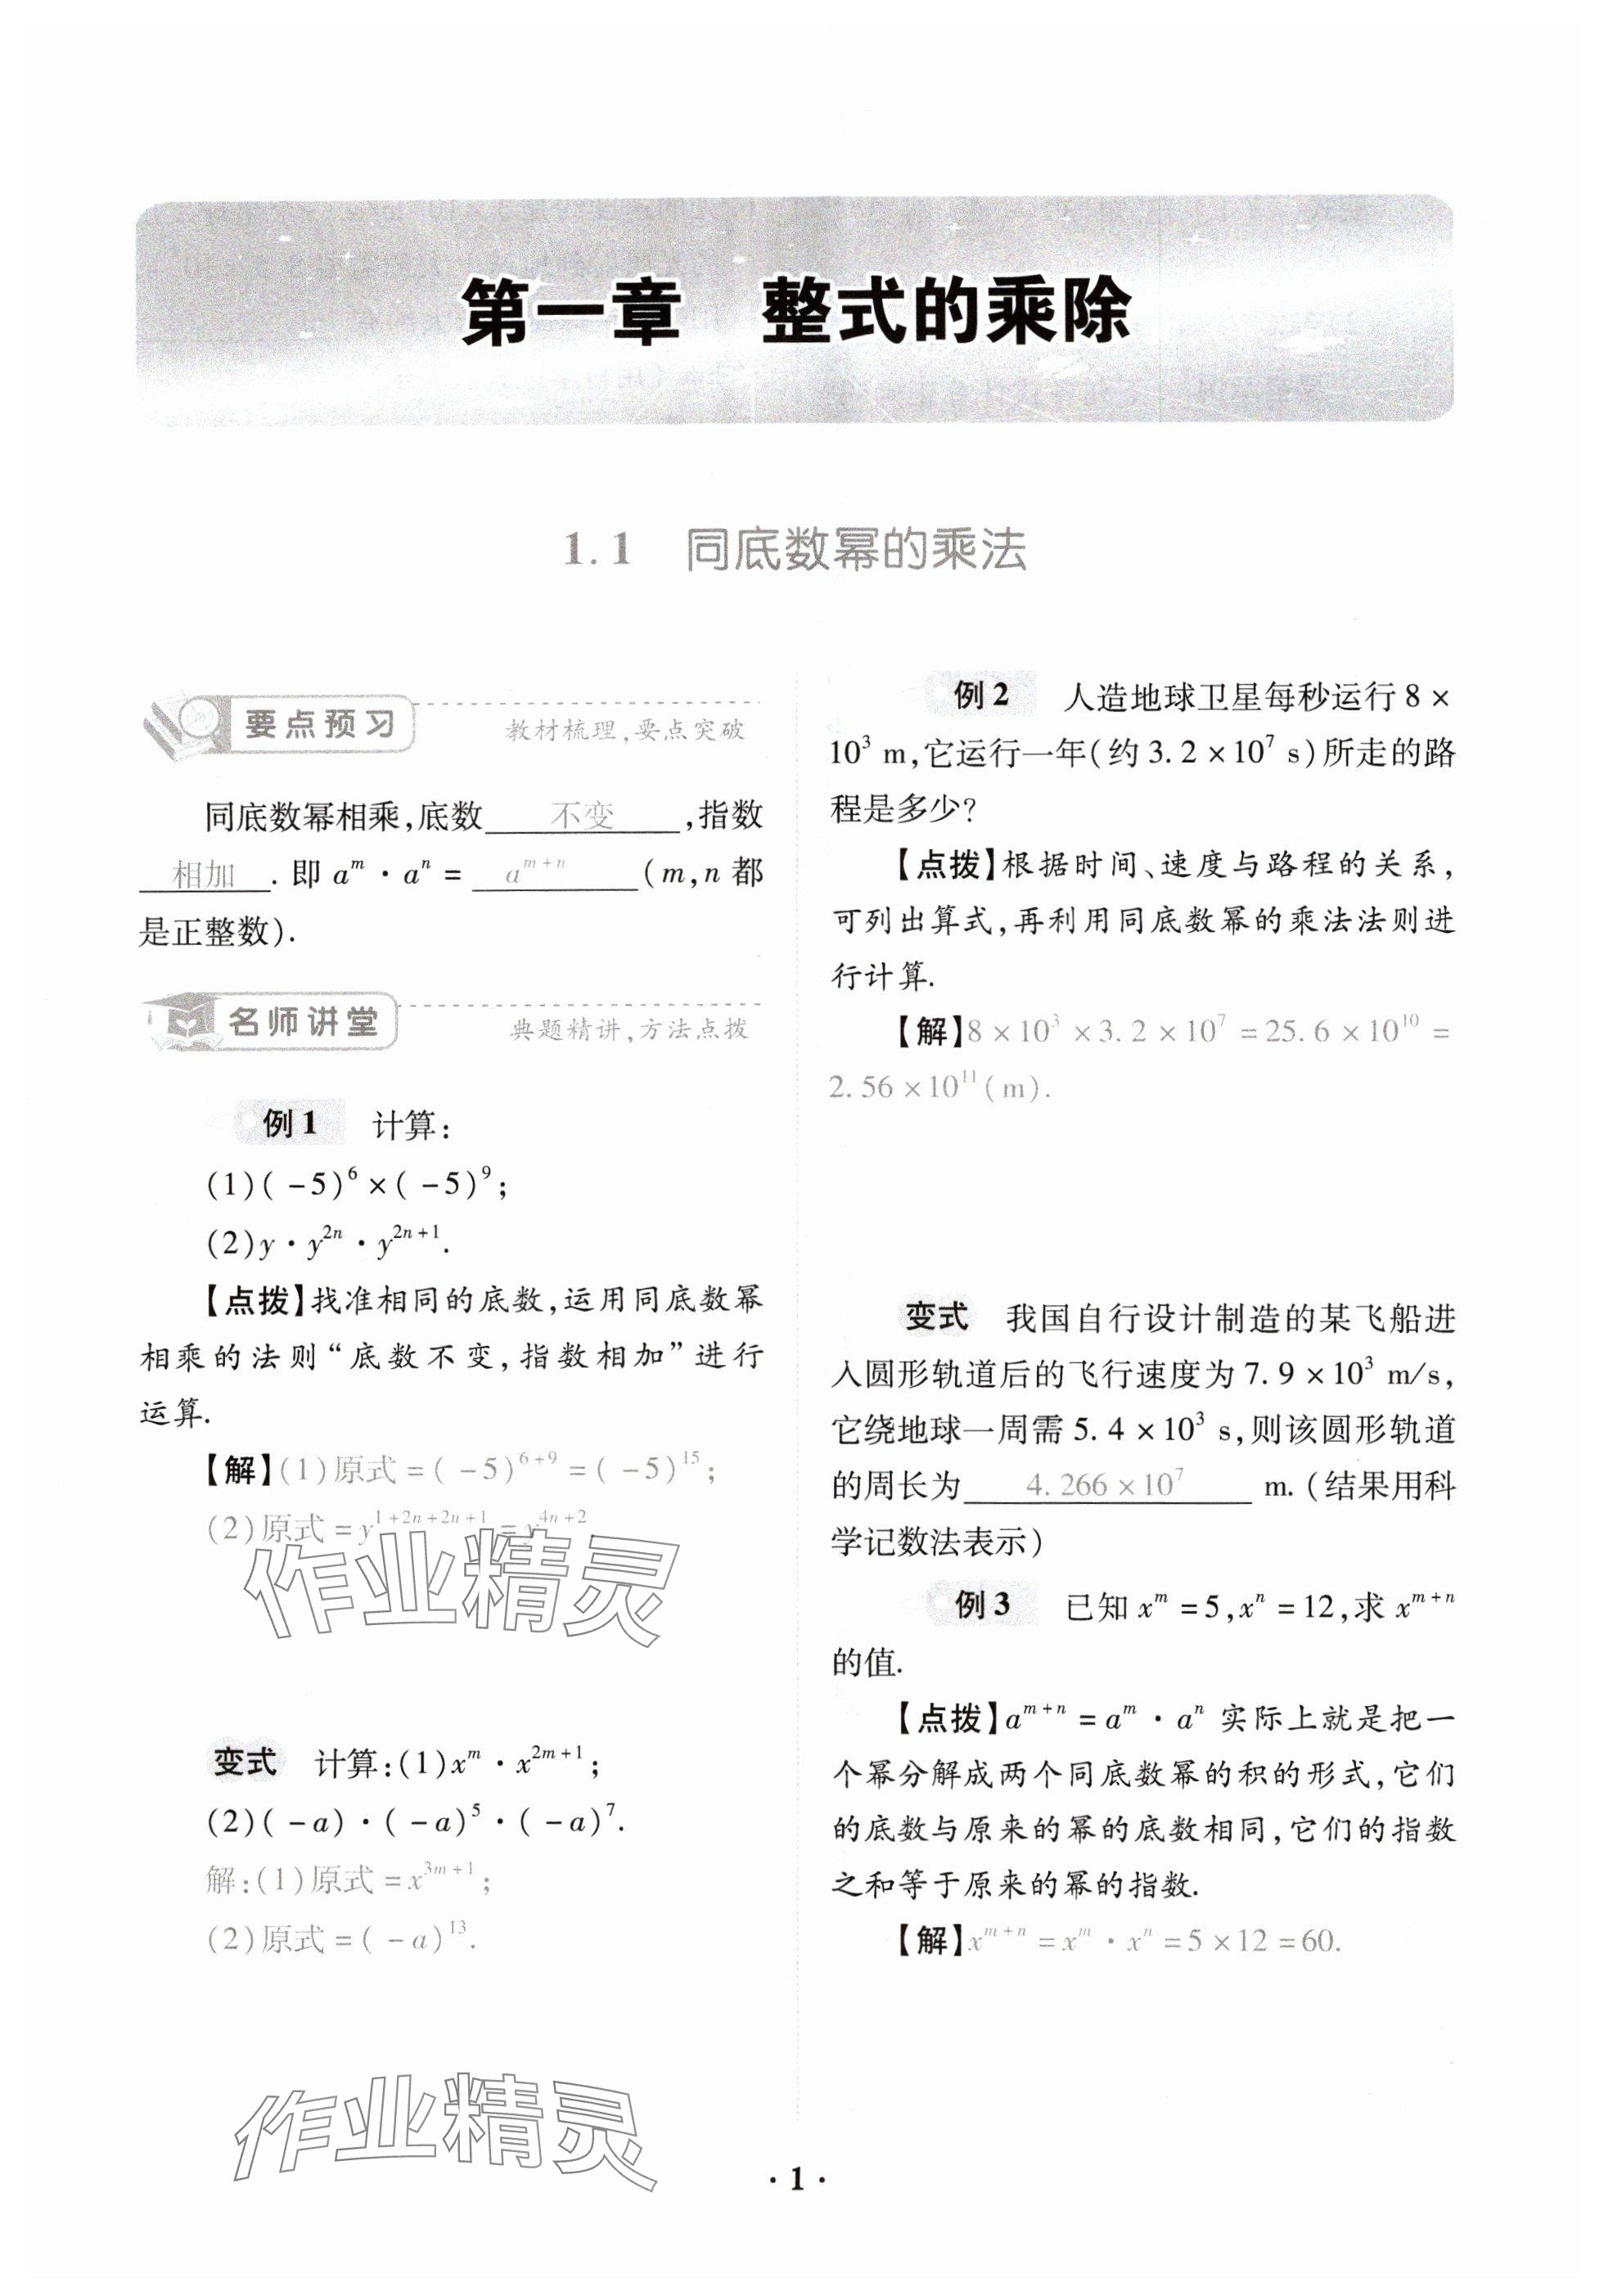 第一章　整式的乘除
1.1　同底数幂的乘法
要点预习　教材梳理,要点突破
同底数幂相乘,底数 不变 ,指数
相加 . 即 a^m · a^n = a^{m+n} (m,n 都
是正整数).
名师讲堂　典题精讲,方法点拨
例1　计算:
(1)(-5)^6×(-5)^9;
(2)y·y^{2n}·y^{2n+1}.
【点拨】找准相同的底数,运用同底数幂
相乘的法则“底数不变,指数相加”进行
运算.
【解】(1)原式=(-5)^{6+9}=(-5)^{15};
(2)原式=y^{1+2n+2n+1}=y^{4n+2}
作业精灵
变式　计算:(1)x^m·x^{2m+1};
(2)(-a)·(-a)^5·(-a)^7.
解:(1)原式=x^{3m+1};
(2)原式=(-a)^{13}.
作业精灵
例2　人造地球卫星每秒运行 8×
10^3 m,它运行一年(约 3.2×10^7 s)所走的路
程是多少?
【点拨】根据时间、速度与路程的关系,
可列出算式,再利用同底数幂的乘法法则进
行计算.
【解】8×10^3×3.2×10^7=25.6×10^{10}=
2.56×10^{11}(m).
变式　我国自行设计制造的某飞船进
入圆形轨道后的飞行速度为 7.9×10^3 m/s,
它绕地球一周需 5.4×10^3 s,则该圆形轨道
的周长为 4.266×10^7 m.(结果用科
学记数法表示)
例3　已知 x^m=5,x^n=12,求 x^{m+n}
的值.
【点拨】a^{m+n}=a^m·a^n 实际上就是把一
个幂分解成两个同底数幂的积的形式,它们
的底数与原来的幂的底数相同,它们的指数
之和等于原来的幂的指数.
【解】x^{m+n}=x^m·x^n=5×12=60.
·1·